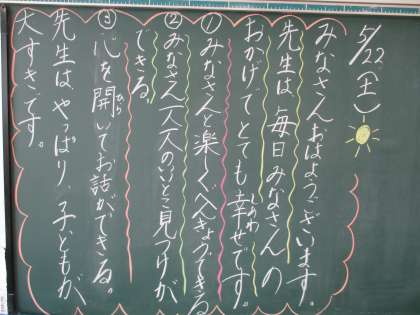 5/22(土)
みなさんおはようございます。
先生は、毎日みなさんの
おかげでとても幸せです。
しあわ
①みなさんと楽しくべんきょうできる
②みなさん一人一人のいいとこ見つけが
できる。
③心を開いてお話ができる。
ひら
先生は、やっぱり、子どもが
大すきです。